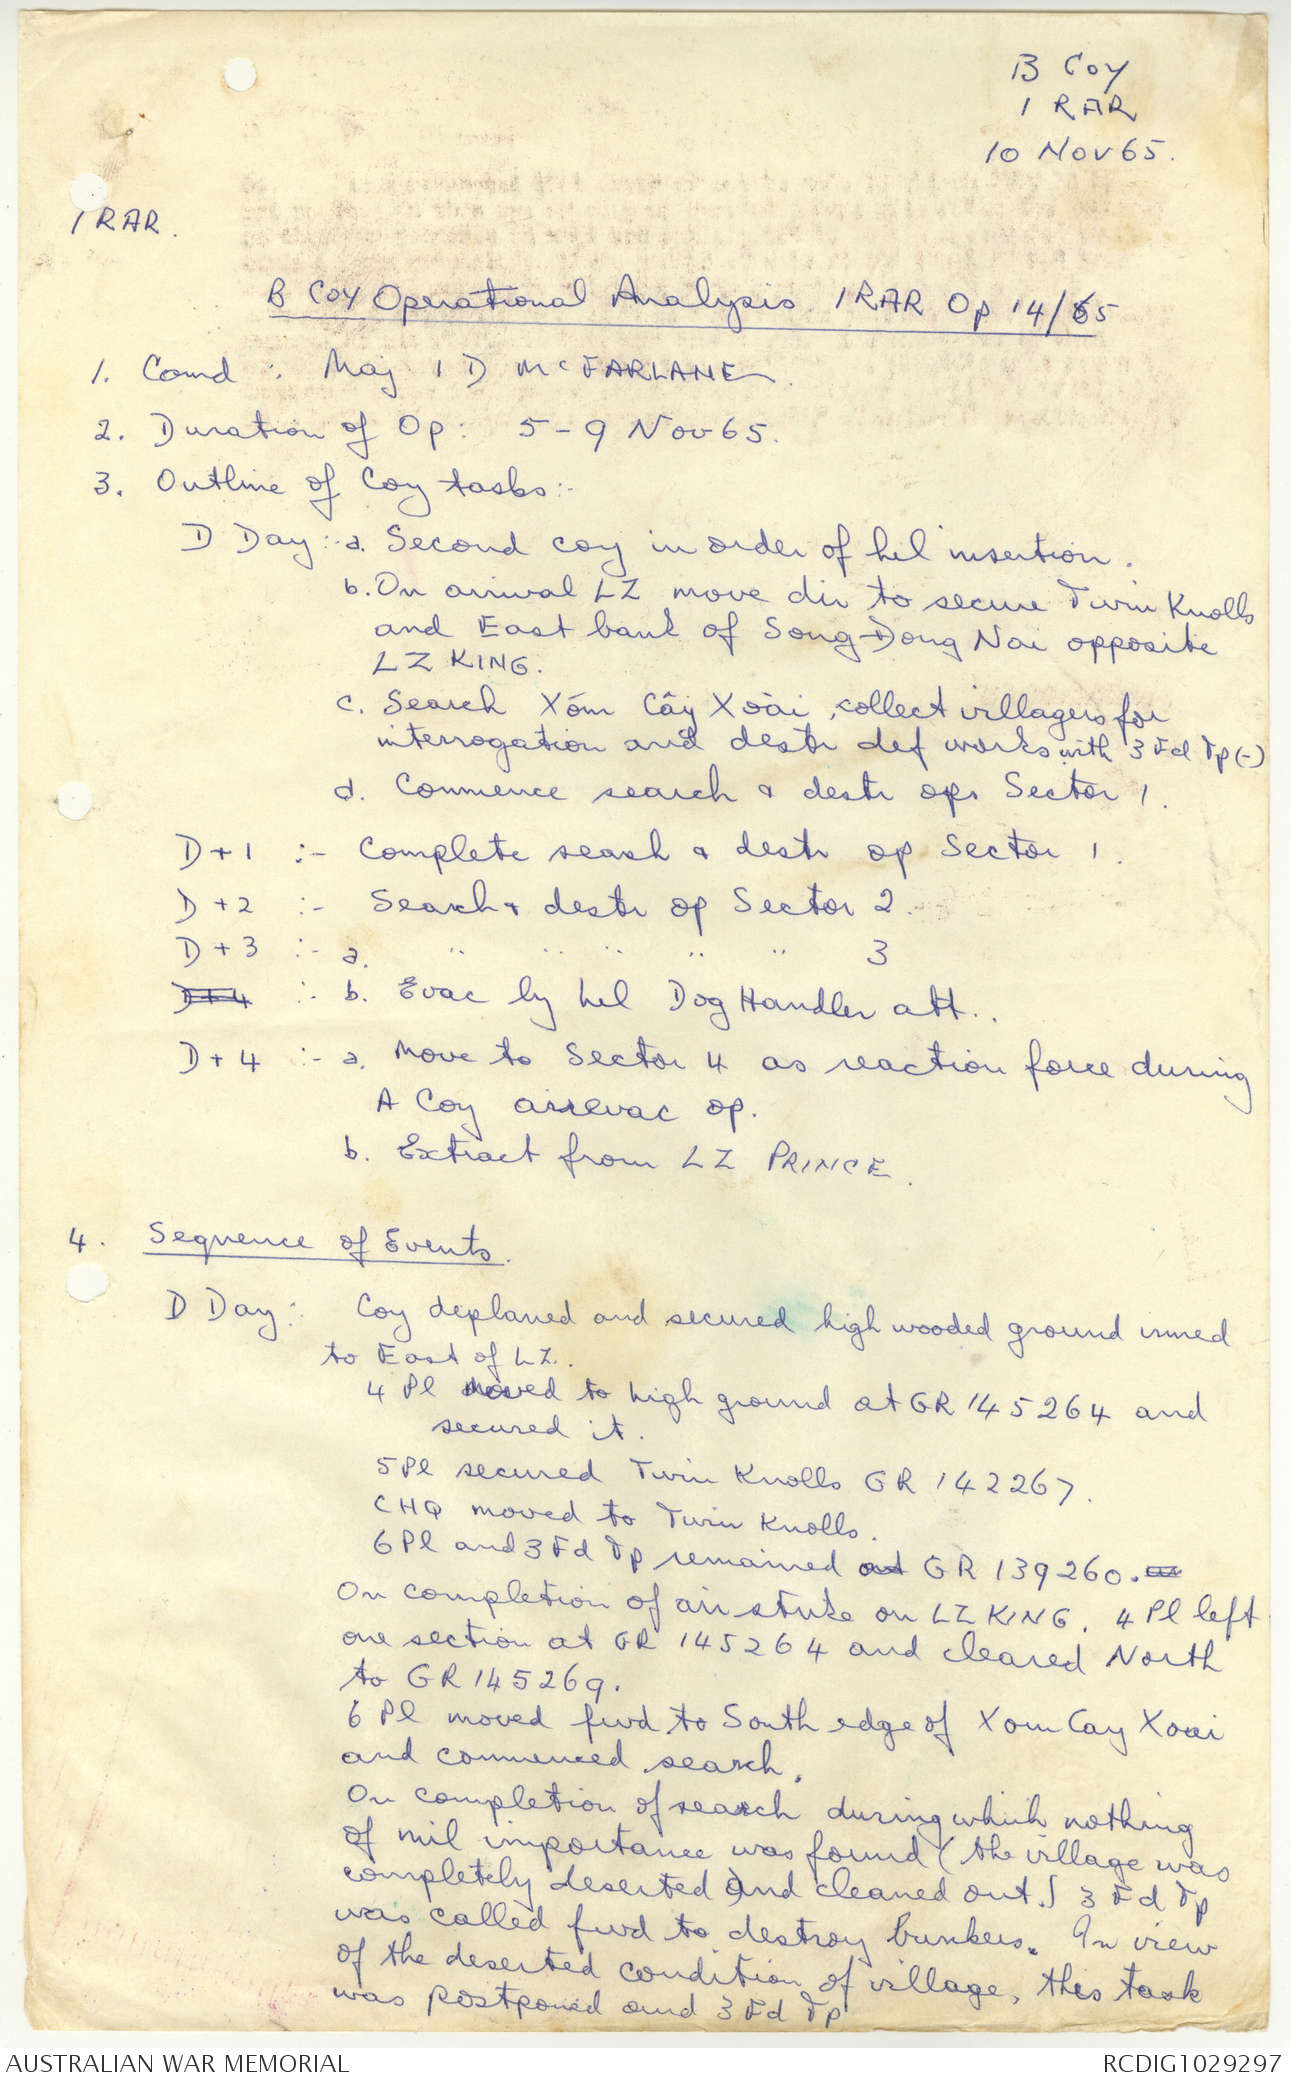 B Coy
1 RAR
10 Nov 65.
1 RAR.
B Coy Operational Analysis 1RAR Op 14/65
1. Comd : Maj I D McFARLANE.
2. Duration of Op: 5-9 Nov 65.
3. Outline of Coy tasks:-
D Day:- a. Second coy in order of hel insertion.
b. On arrival LZ move dir to secure Twin Knolls
and East bank of Song Dong Nai opposite
LZ KING.
c. Search Xóm Cây Xoài, collect villagers for
interrogation and destr def works with 3 Fd Tp (-)
d. Commence search & destr ops Sector 1.
D+1 :- Complete seach & destr op Sector 1.
D+2 :- Search & destr op Sector 2.
D+3 :- a. " " " " " 3
D+4 :- b. Evac by hel Dog Handler att..
D+4 :- a. Move to Sector 4 as reaction force during
A Coy airevac op.
b. Extract from LZ PRINCE.
4. Sequence of Events.
D Day: Coy deplaned and secured high wooded ground immed
to East of LZ.
4 Pl moved to high ground at GR 145264 and
secured it.
5 Pl secured Twin Knolls GR 142267.
CHQ moved to Twin Knolls.
6 Pl and 3 Fd Tp remained at GR 139260.
On completion of air strike on LZ KING, 4 Pl left
one section at GR 145264 and cleared North
to GR 145269.
6 Pl moved fwd to South edge of Xom Cay Xoai
and commenced search.
On completion of search during which nothing
of mil importance was found (the village was
completely deserted and cleaned out.) 3 Fd Tp
was called fwd to destroy bunkers. In view
of the deserted condition of village, this task
was postponed and 3 Fd Tp
AUSTRALIAN WAR MEMORIAL
RCDIG1029297